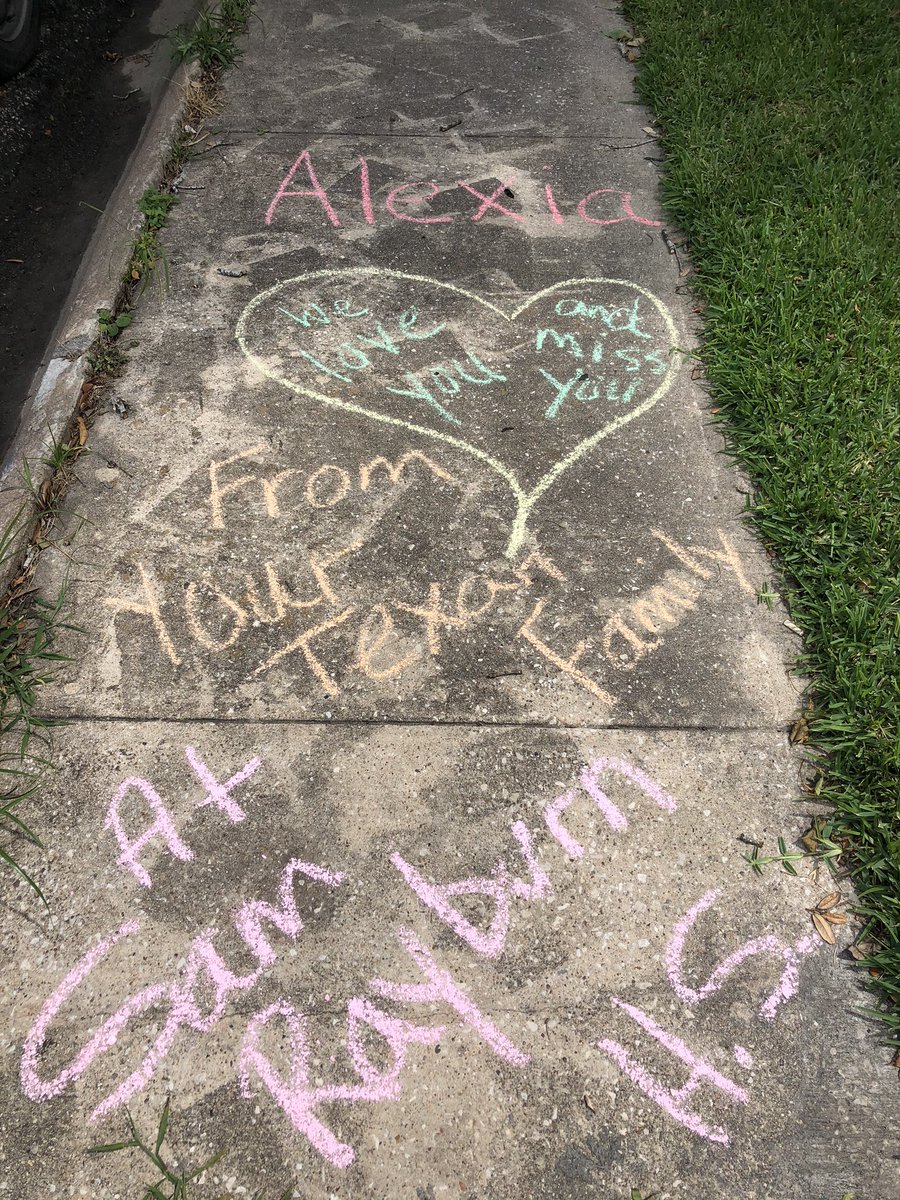 Alexia
We love you
and miss you
From
Your Texan Family
At
Sam Rayburn H.S.